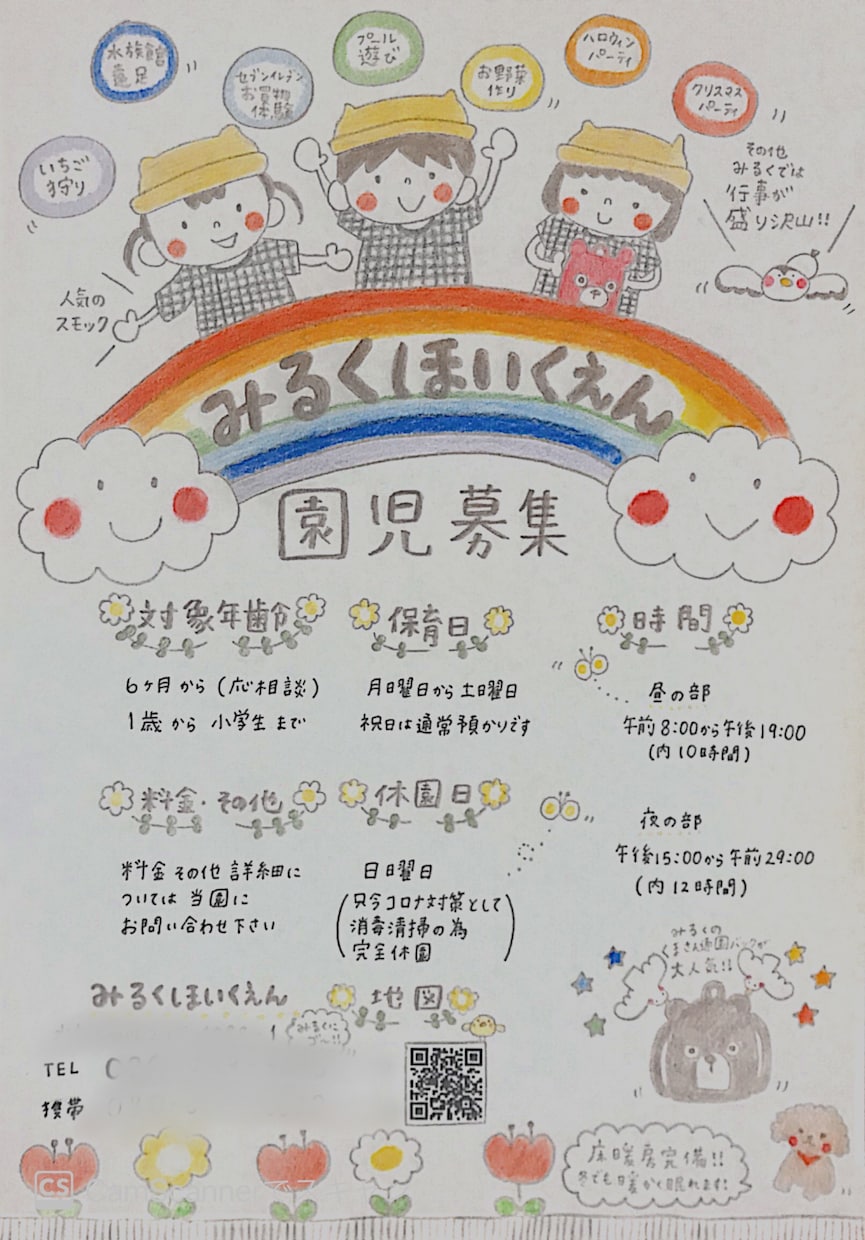 水族館
遠足
セブンイレブン
お買物
体験
プール
遊び
お野菜
作り
ハロウィン
パーティ
クリスマス
パーティ
いちご
狩り
その他
みるくでは
行事が
盛り沢山!!
人気の
スモック
みるくほいくえん
園児募集
対象年齢
6ヶ月から(応相談)
1歳から小学生まで
保育日
月曜日から土曜日
祝日は通常預かりです
時間
昼の部
午前8:00から午後19:00
(内10時間)
夜の部
午後15:00から午前29:00
(内12時間)
料金・その他
料金その他詳細に
ついては当園に
お問い合わせ下さい
休園日
日曜日
(只今コロナ対策として
消毒清掃の為
完全休園)
みるくの
くまさん通園バックが
大人気!!
みるくほいくえん
地図
みるくに
ゴー!!
TEL
携帯
床暖房完備!!
冬でも暖かく眠れます!
CS CamScannerでスキャン